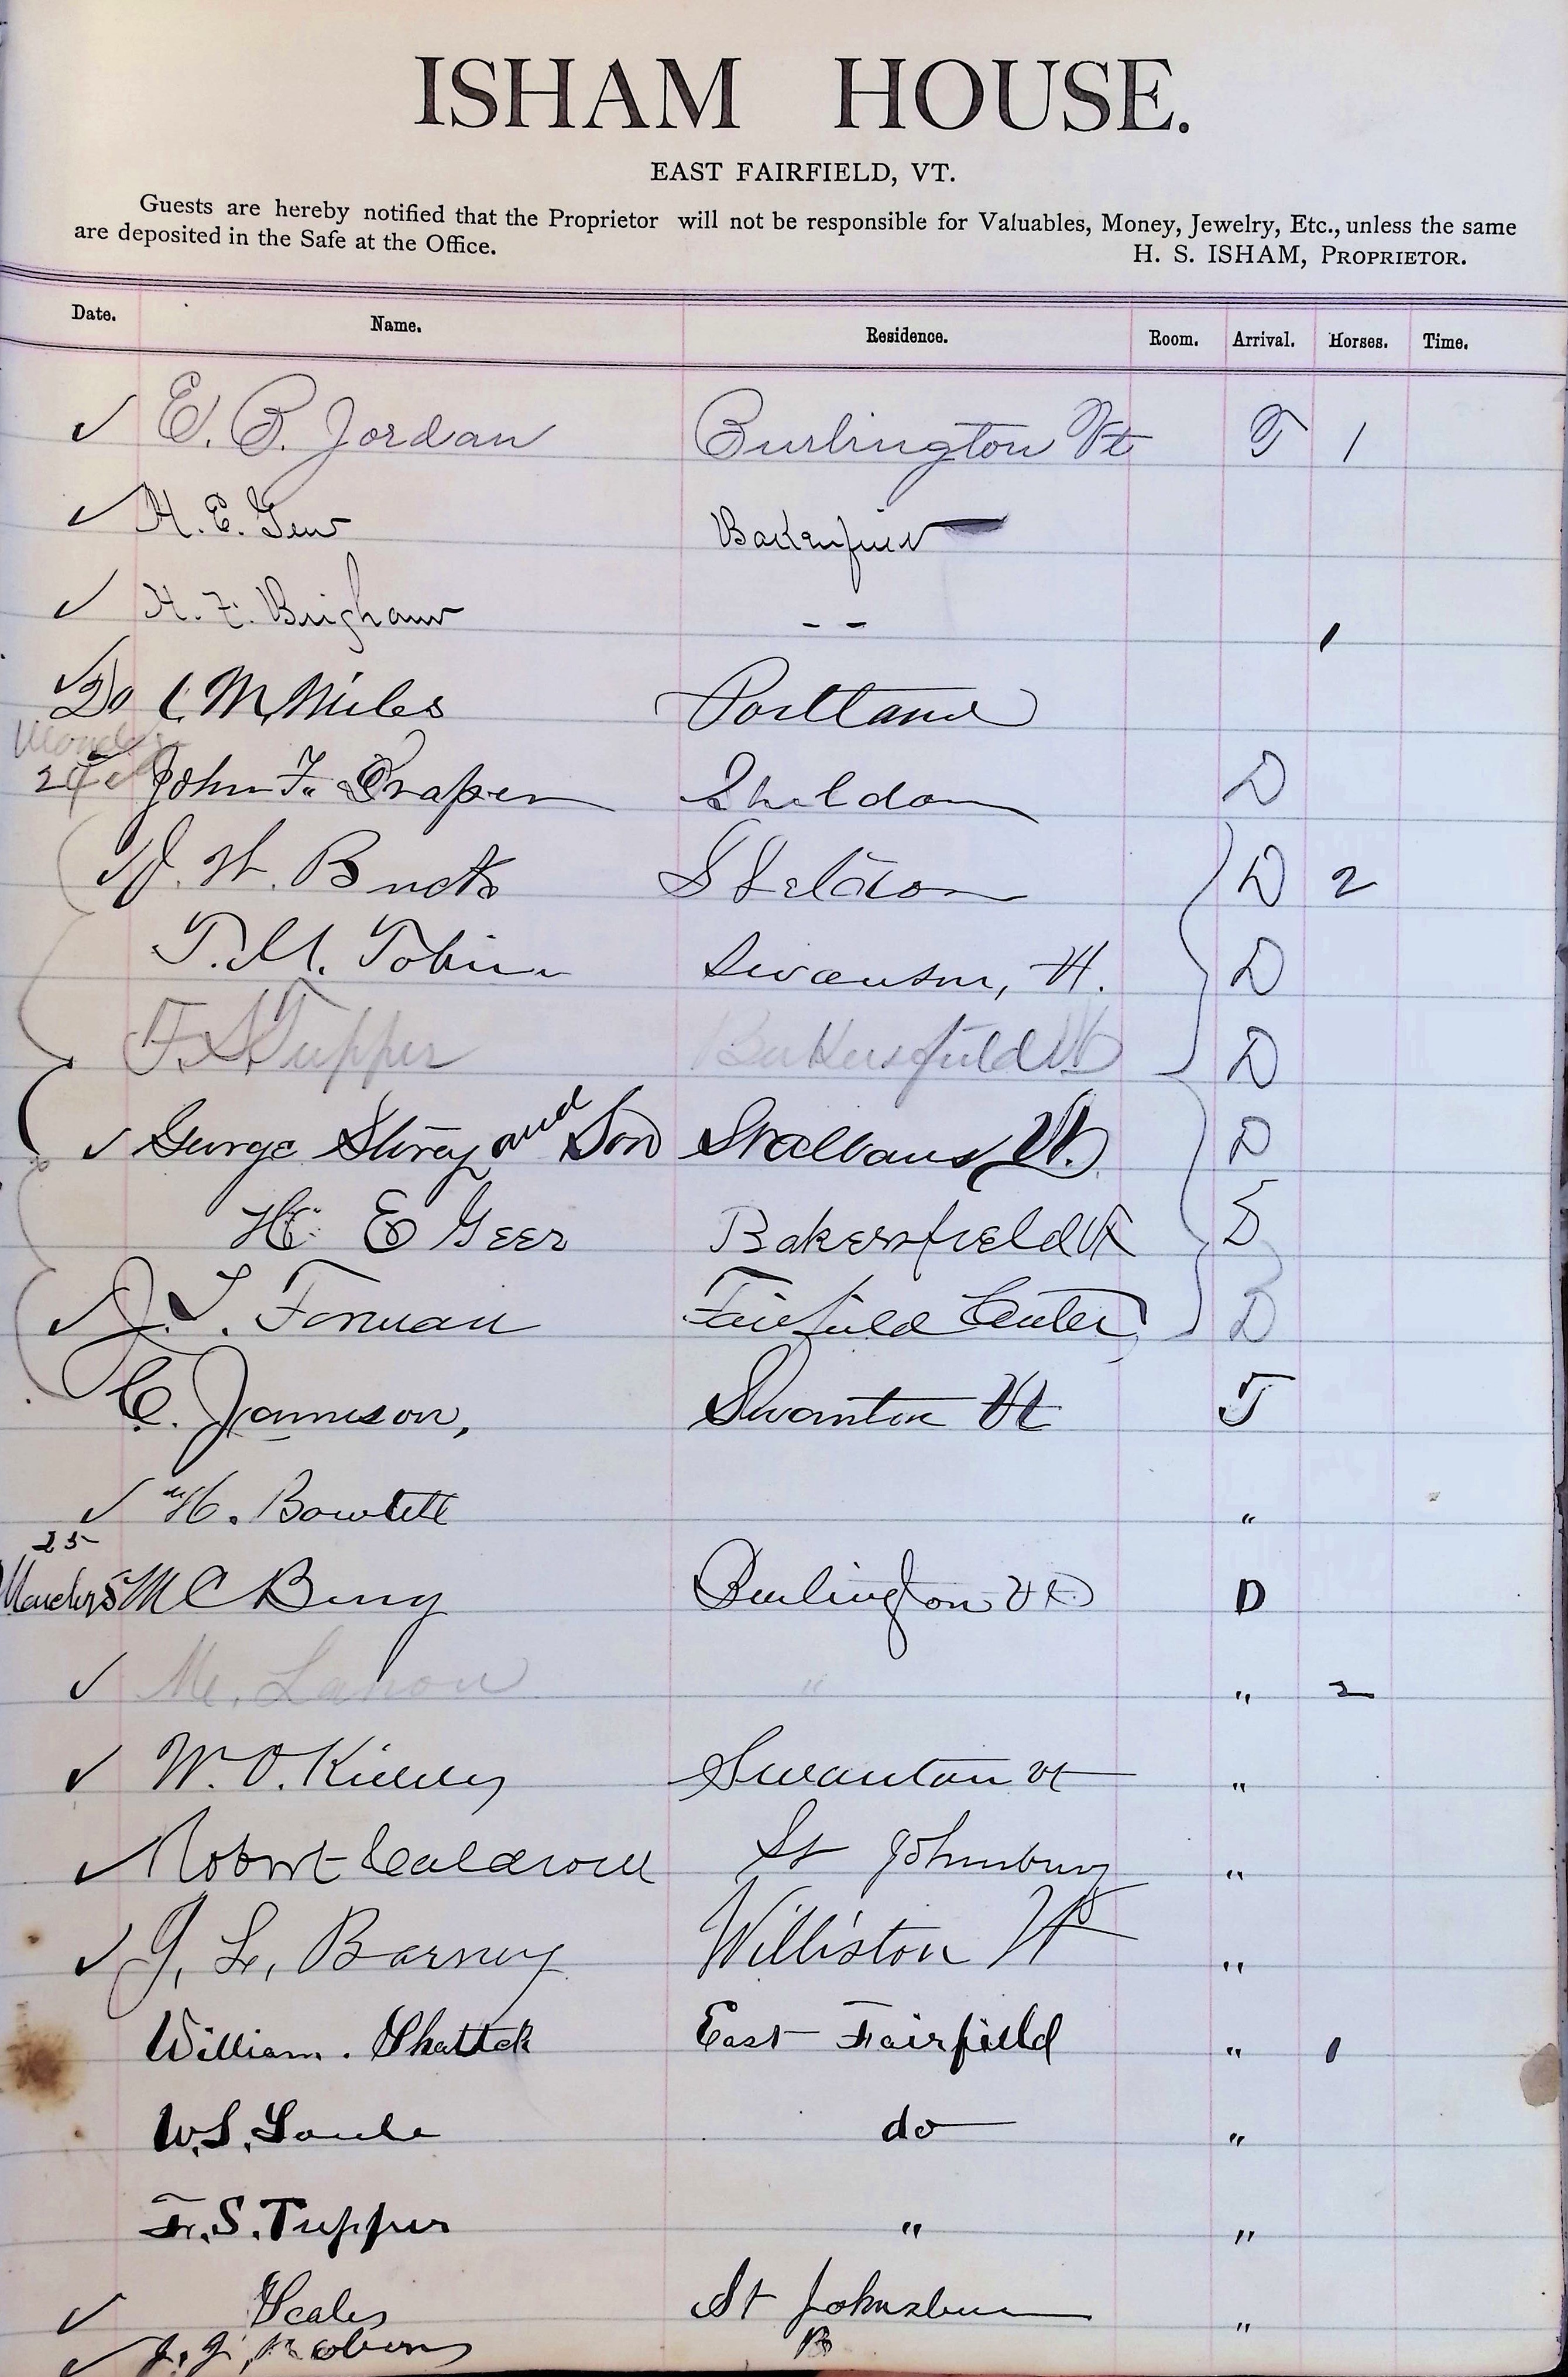 ISHAM HOUSE.
EAST FAIRFIELD, VT.
Guests are hereby notified that the Proprietor will not be responsible for Valuables, Money, Jewelry, Etc., unless the same
are deposited in the Safe at the Office.
H. S. ISHAM, PROPRIETOR.
Date. Name. Residence. Room. Arrival. Horses. Time.
✓ E. B. Jordan Burlington Vt T 1
✓ H. E. Geer Bakersfield
✓ H. F. Brigham - - 1
✓ Do C M Miles Portland
Monday
24 John F. Draper Sheldon D
✓ J. W. Buck Sheldon D 2
T. M. Tobin Swanton, Vt. D
F. S. Tupper Bakersfield Vt D
✓ George Storey and Son St Albans Vt. D
H. E Geer Bakersfield Vt D
✓ J. T. Fornuan Fairfield Center D
C. Jamieson, Swanton Vt T
✓ " H. Bowtell "
25
M C Berry Burlington Vt D
✓ M. Lanou " " 2
✓ W. O. Swanton Vt "
✓ Robert Caldwell St Johnsbury "
✓ J. L. Barney Williston Vt "
William. Shattck East Fairfield " 1
W. S. Soule do "
F. S. Tupper " "
✓ Scales St Johnsbury "
✓ J. J. Roberts B